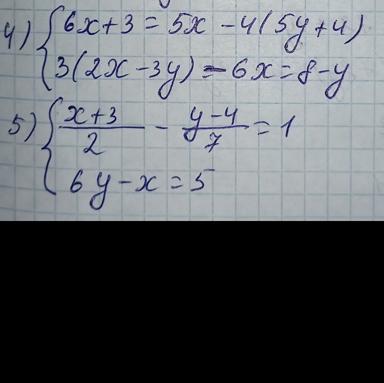 4) { 6x+3 = 5x - 4(5y+4)
3(2x-3y) - 6x = 8-y
5) { (x+3)/2 - (y-4)/7 = 1
6y - x = 5